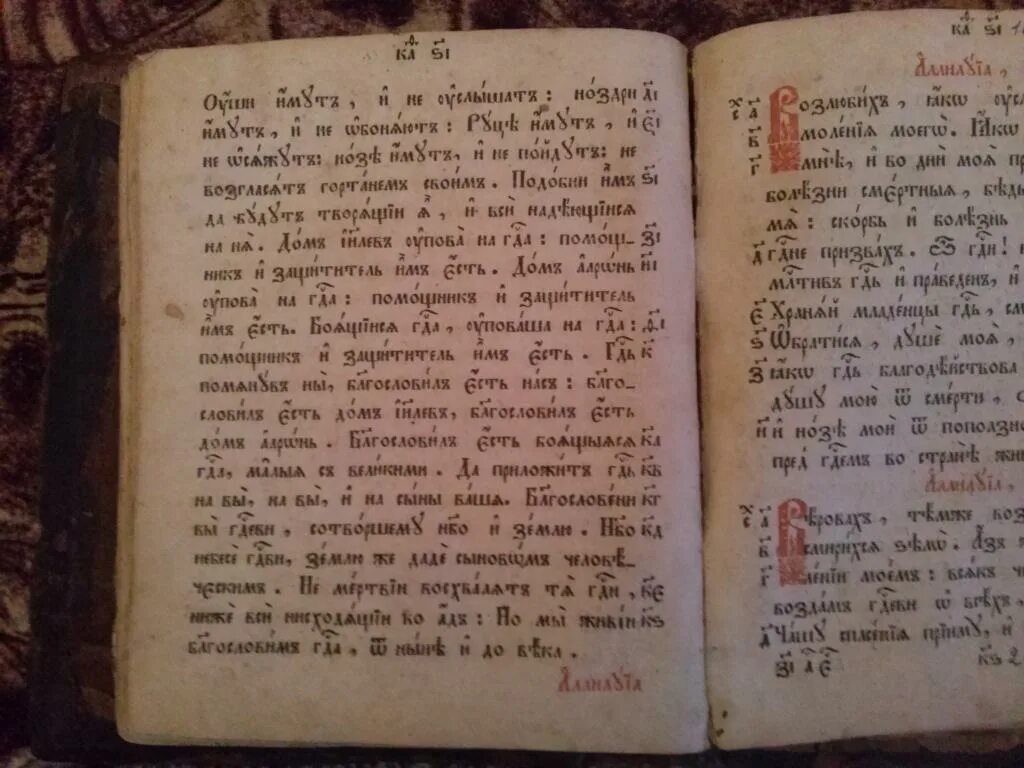 ка҃ ѕ҃і
Оу҆́ши и҆́мутъ, и҆ не оу҆слы́шатъ: но́здри д҃і
и҆́мутъ, и҆ не ѡ҆боня́ютъ: Ру́цѣ и҆́мутъ, и҆ е҃і
не ѡ҆ся́жутъ: но́зѣ и҆́мутъ, и҆ не по́йдутъ: не
возглася́тъ горта́немъ свои́мъ. Подо́бни и҆̀мъ ѕ҃і
да бу́дутъ творя́щїи ѧ҆̀, и҆ всѝ надѣ́ющїися
на ня̀. До́мъ і҆и҃левъ оу҆пова̀ на гд҃а: помо́щ_ з҃і
никъ и҆ защи́титель и҆̀мъ є҆́сть. До́мъ а҆арѡ́нь и҃і
оу҆пова̀ на гд҃а: помо́щникъ и҆ защи́титель
и҆̀мъ є҆́сть. Боя́щїися гд҃а, оу҆пова́ша на гд҃а: ѳ҃і
помо́щникъ и҆ защи́титель и҆̀мъ є҆́сть. Гд҃ь к҃
помяну́въ ны̀, бл҃гослови́лъ є҆́сть на́съ: бл҃го_
слови́лъ є҆́сть до́мъ і҆и҃левъ, бл҃гослови́лъ є҆́сть
до́мъ а҆арѡ́нь. Бл҃гослови́лъ є҆́сть боя́щыяся ка҃
гд҃а, ма́лыя съ вели́кими. Да приложи́тъ гд҃ь кв҃
на вы̀, на вы̀, и҆ на сы́ны ва́шя. Бл҃гослове́ни кг҃
вы̀ гд҃еви, сотво́ршему нб҃о и҆ зе́млю. Нб҃о кд҃
небесѐ гд҃ви, зе́млю же дадѐ сыновѡ́мъ человѣ́_
ческимъ. Не ме́ртвїи восхва́лятъ тя̀ гд҃и, ке҃
нижѐ всѝ нисходя́щїи во а҆́дъ: Но мы̀ живі́и кѕ҃
бл҃гослови́мъ гд҃а, ѿ ны́нѣ и҆ до вѣ́ка.
А҆ллилу́їа
ка҃ ѕ҃і
А҆ллилу́їа,
х҃с а҃ Возлюби́хъ, ꙗ҆́кѡ
в҃ моле́нїя моегѡ̀. Ꙗ҆́кѡ
г҃ мнѣ̀, и҆ во дни̑ моя̑
болѣ́зни сме́ртныя,
мя̀: ско́рбь и҆ болѣ́знь
д҃ гд҃не призва́хъ. Ѽ гд҃и!
мл҃тивъ гд҃ь и҆ пра́веденъ, и҆
е҃ Храня́й младе́нцы гд҃ь,
ѕ҃ Ѡ҆брати́ся, ду́ше моя̀,
з҃ гд҃ь
ду́шу мою̀ ѿ сме́рти,
и҃ и҆ но́зѣ моѝ ѿ
пред гд҃емъ во странѣ̀
А҆ллилу́їа,
х҃с а҃ Вѣ́ровахъ, тѣ́мже
в҃ смири́хся ѕѣлѡ̀. А҆́зъ
г҃ ле́нїи мое́мъ: вся́къ
возда́мъ гд҃еви ѡ҆ всѣ́хъ,
д҃ Ча́шу спасе́нїя прїиму̀, и҆
з҃і а҃ е҃ кѕ҃ 2